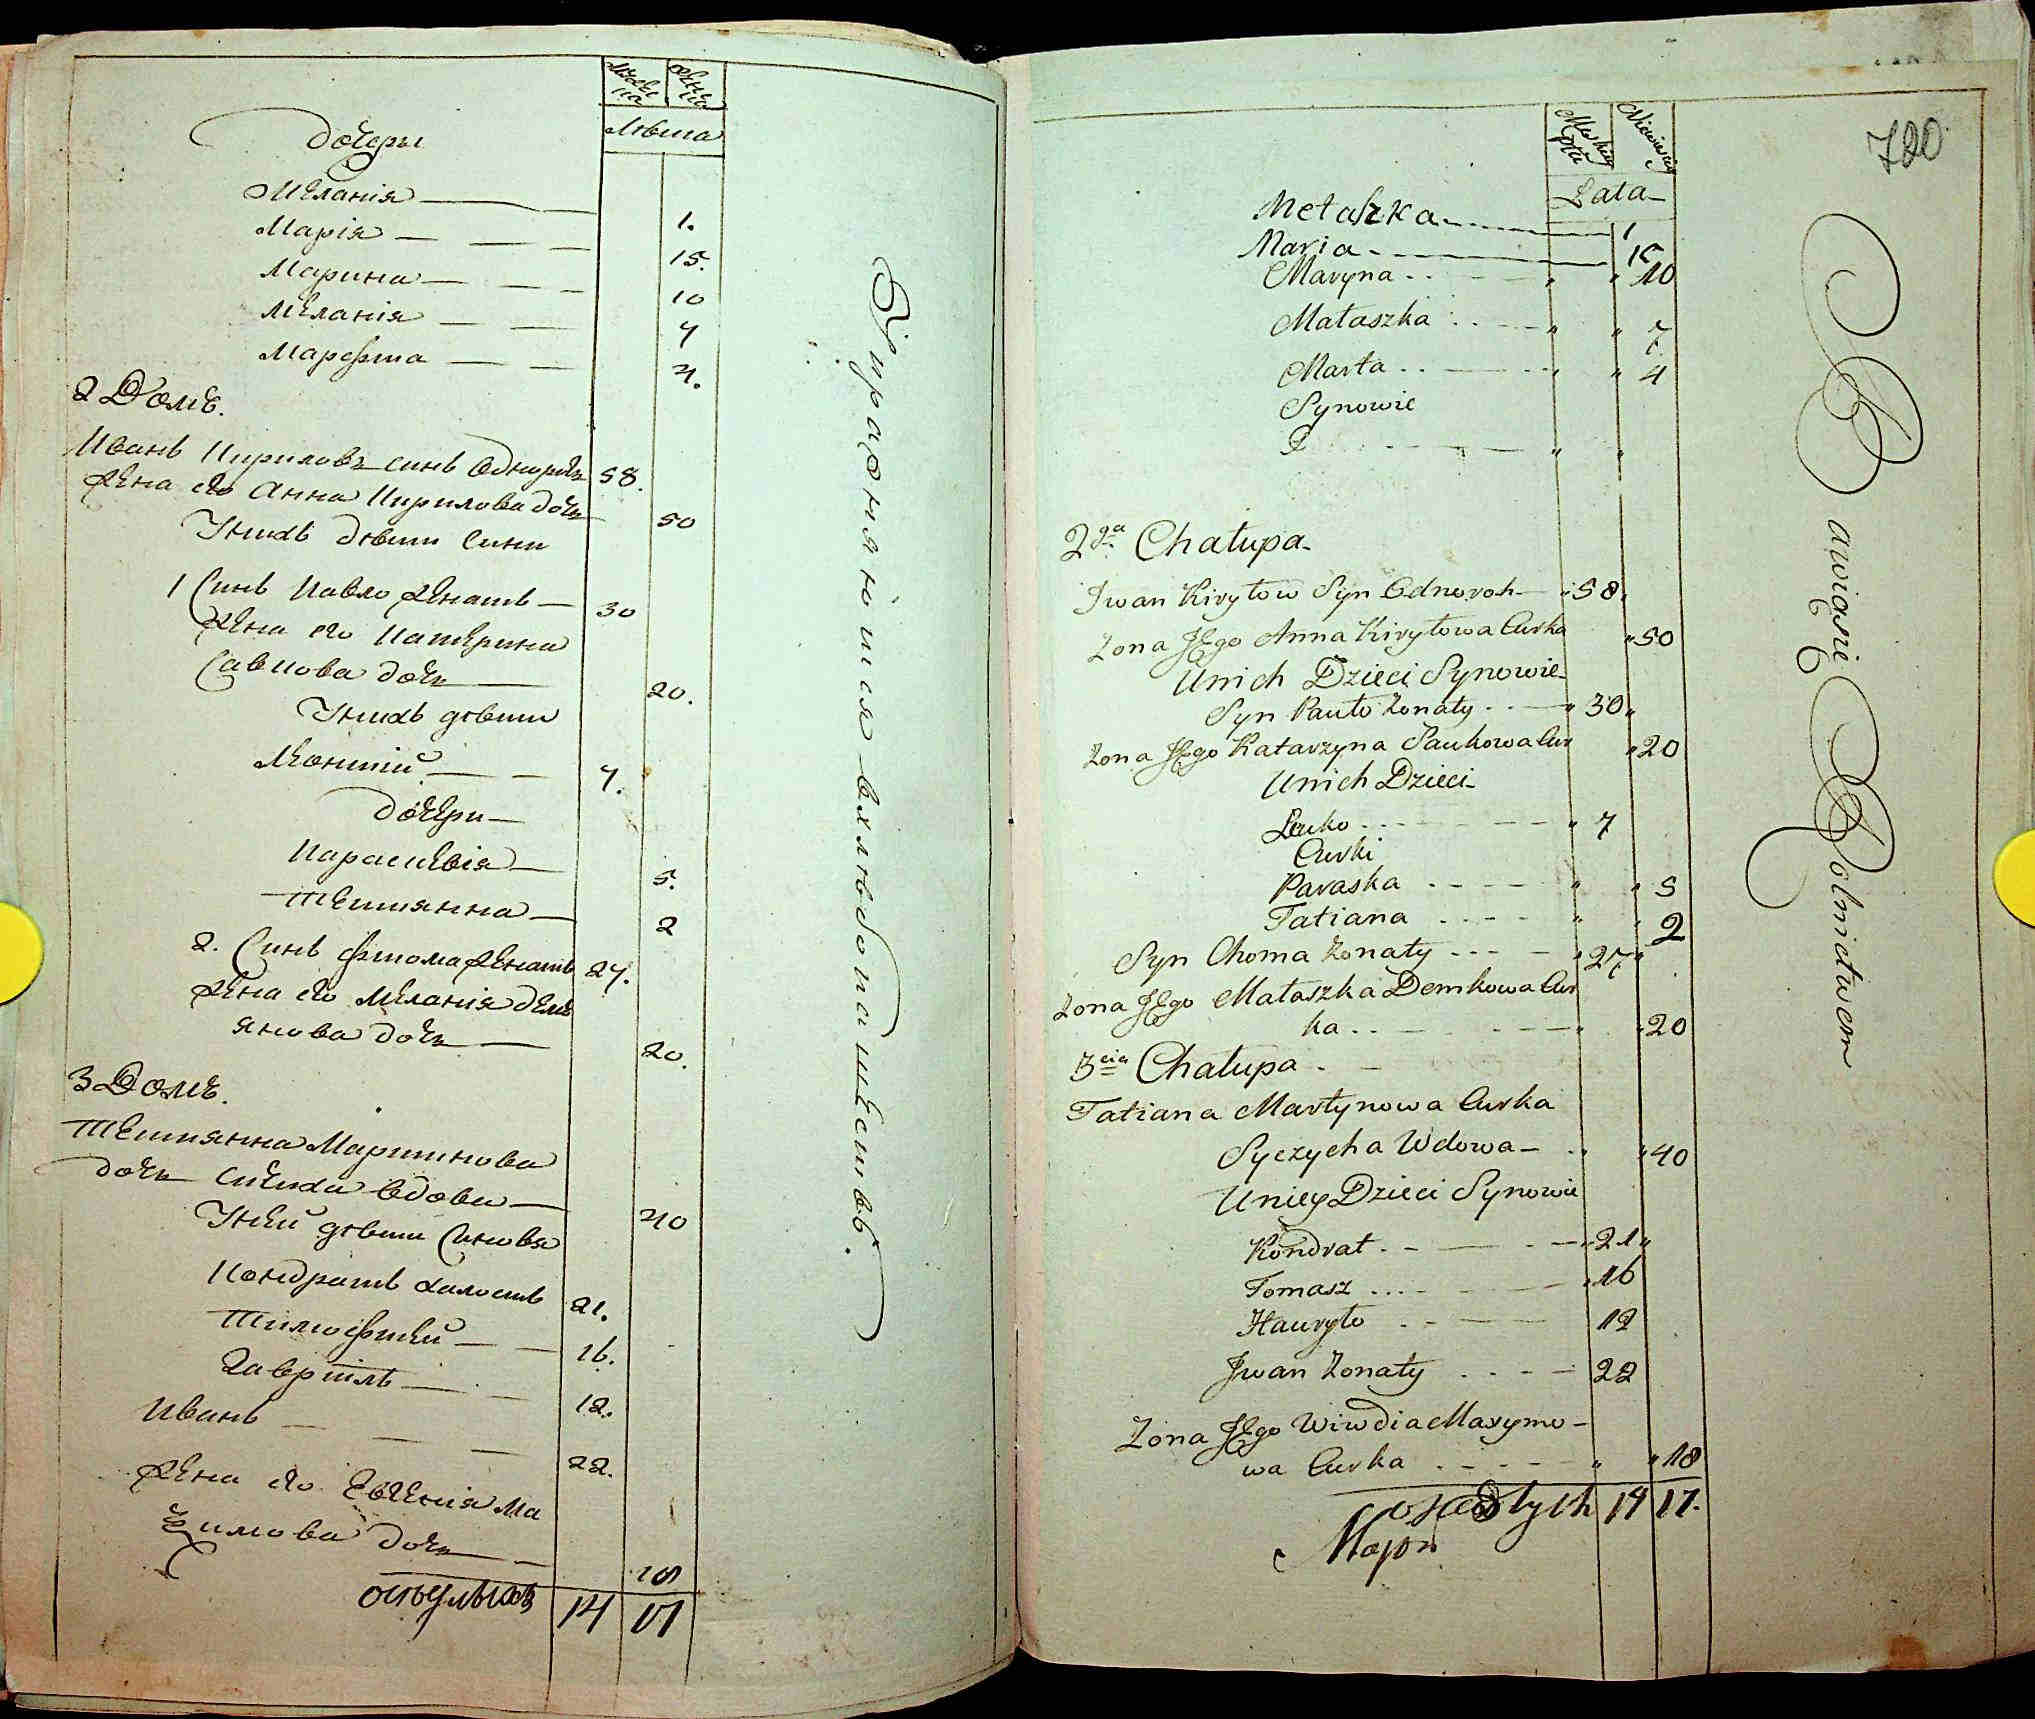 Мужеска
Женска
Лѣта
Дочеры
Меланія 1.
Марія 15.
Марина 10
Меланія 7
Марфта 4.
2 Домъ.
Иванъ Кириловъ синъ Однорогъ 58.
Жена его Анна Кирилова дочь 50
У нихъ дѣти сини
1 Синъ Павло женатъ 30
Жена его Катерина
Савкова дочь 20.
У нихъ дѣти
Леонтій 7.
дочери
Параскевія 5.
Тетиянна 2
2. Синъ Фтома женатъ 27.
Жена его Меланія Дем
янова дочь 20.
3 Домъ.
Тетиянна Мартинова
дочь Сичиха вдова 40
У ней дѣти синовя
Кондратъ халостъ 21.
Тимофтей 16.
Гавріилъ 12.
Иванъ 22.
Жена его Евгенія Ма
ѯимова дочь 18
осѣдлыхъ 14 17
Упражняюшися вхлѣбопашествѣ.
720
Męskiey płci
Niewieściey
Lata
Metaszka 1
Maria 15
Maryna 10
Małaszka 7
Marta 4
Synowie
2ga Chałupa
Iwan Kiryłow Syn Odnoroh 58
Żona Jego Anna Kiryłowa Curka 50
Unich Dzieci Synowie
Syn Pauło żonaty 30
Żona Jego Katarzyna Saukowa Cur 20
Unich Dzieci
Leuko 7
Curki
Paraska 5
Tatiana 2
Syn Choma żonaty 27
Żona Jego Małaszka Demkowa Cur
ka 20
3cia Chałupa
Tatiana Martynowa Curka
Syczycha Wdowa 40
Uniey Dzieci Synowie
Kondrat 21
Tomasz 16
Hauryło 12
Iwan żonaty 22
Żona Jego Wiwdia Maxymo-
wa Curka 18
osiadłych 14 17.
Major
Bawiąsię Rolnictwem